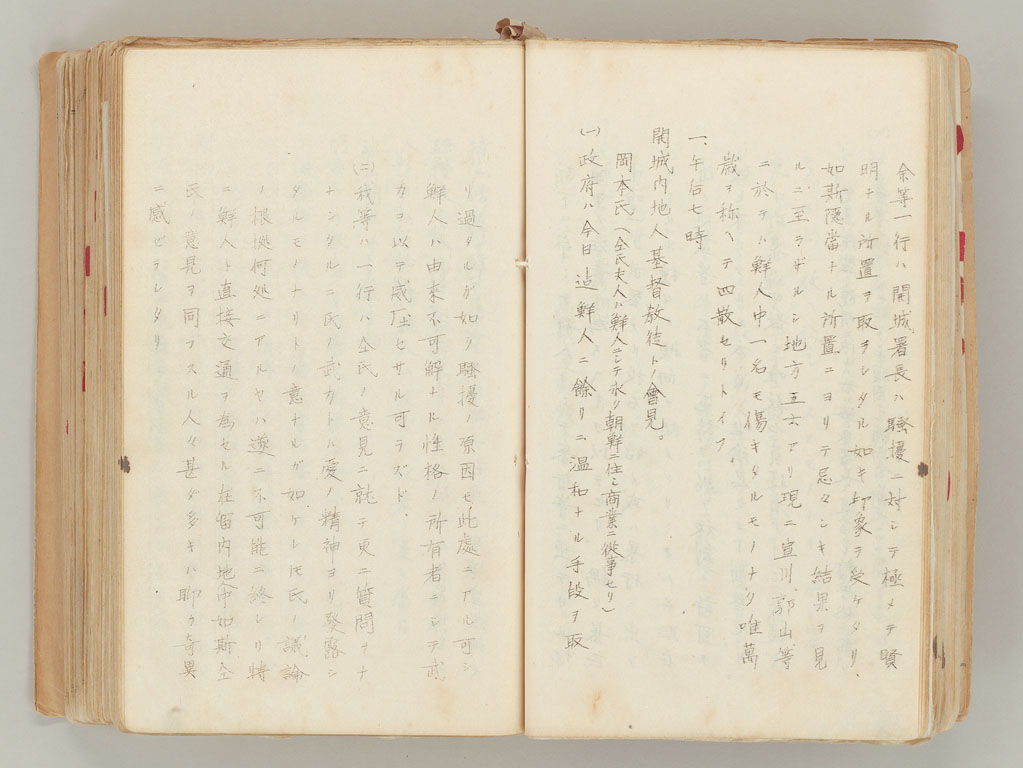 余等一行ハ開城署長ハ騒擾ニ対シテ極メテ賢
明ナル所置ヲ取ラレタル如キ印象ヲ受ケタリ、
如斯隠当ナル所置ニヨリテ忌々シキ結果ヲ見
ルニ至ラザルシ地方五六アリ現ニ宣川郭山等
ニ於テハ鮮人中一名モ傷キタルモノナク唯萬
歳ヲ称ヘテ四散セリトイフ。
一、午后七時
開城内地人基督教徒トノ會見。
岡本氏(仝氏夫人ハ鮮人ニシテ永ク朝鮮ニ住ミ商業ニ從事セリ)
(一)政府ハ今日迄鮮人ニ餘リニ温和ナル手段ヲ取
リ過タルガ如ク騒擾ノ原因モ此處ニアル可シ
鮮人ハ由来不可解ナル性格ノ所有者ニシテ武
力ヲ以テ威圧セサル可ラズト.
(二)我等ハ一行ハ仝氏ノ意見ニ就テ更ニ質問ヲナ
ナシタルニ氏ノ武力トハ愛ノ精神ヨリ発露シ
タルモノナリトノ意ナルガ如ケレ氏ノ議論
ノ根拠何処ニアルヤハ遂ニ不可能ニ終レリ特
ニ鮮人ト直接交通ヲ為セル在留内地中如斯仝
氏ノ意見ヲ同フスル人々甚ダ多キハ聊カ奇異
ニ感ゼラレタリ.